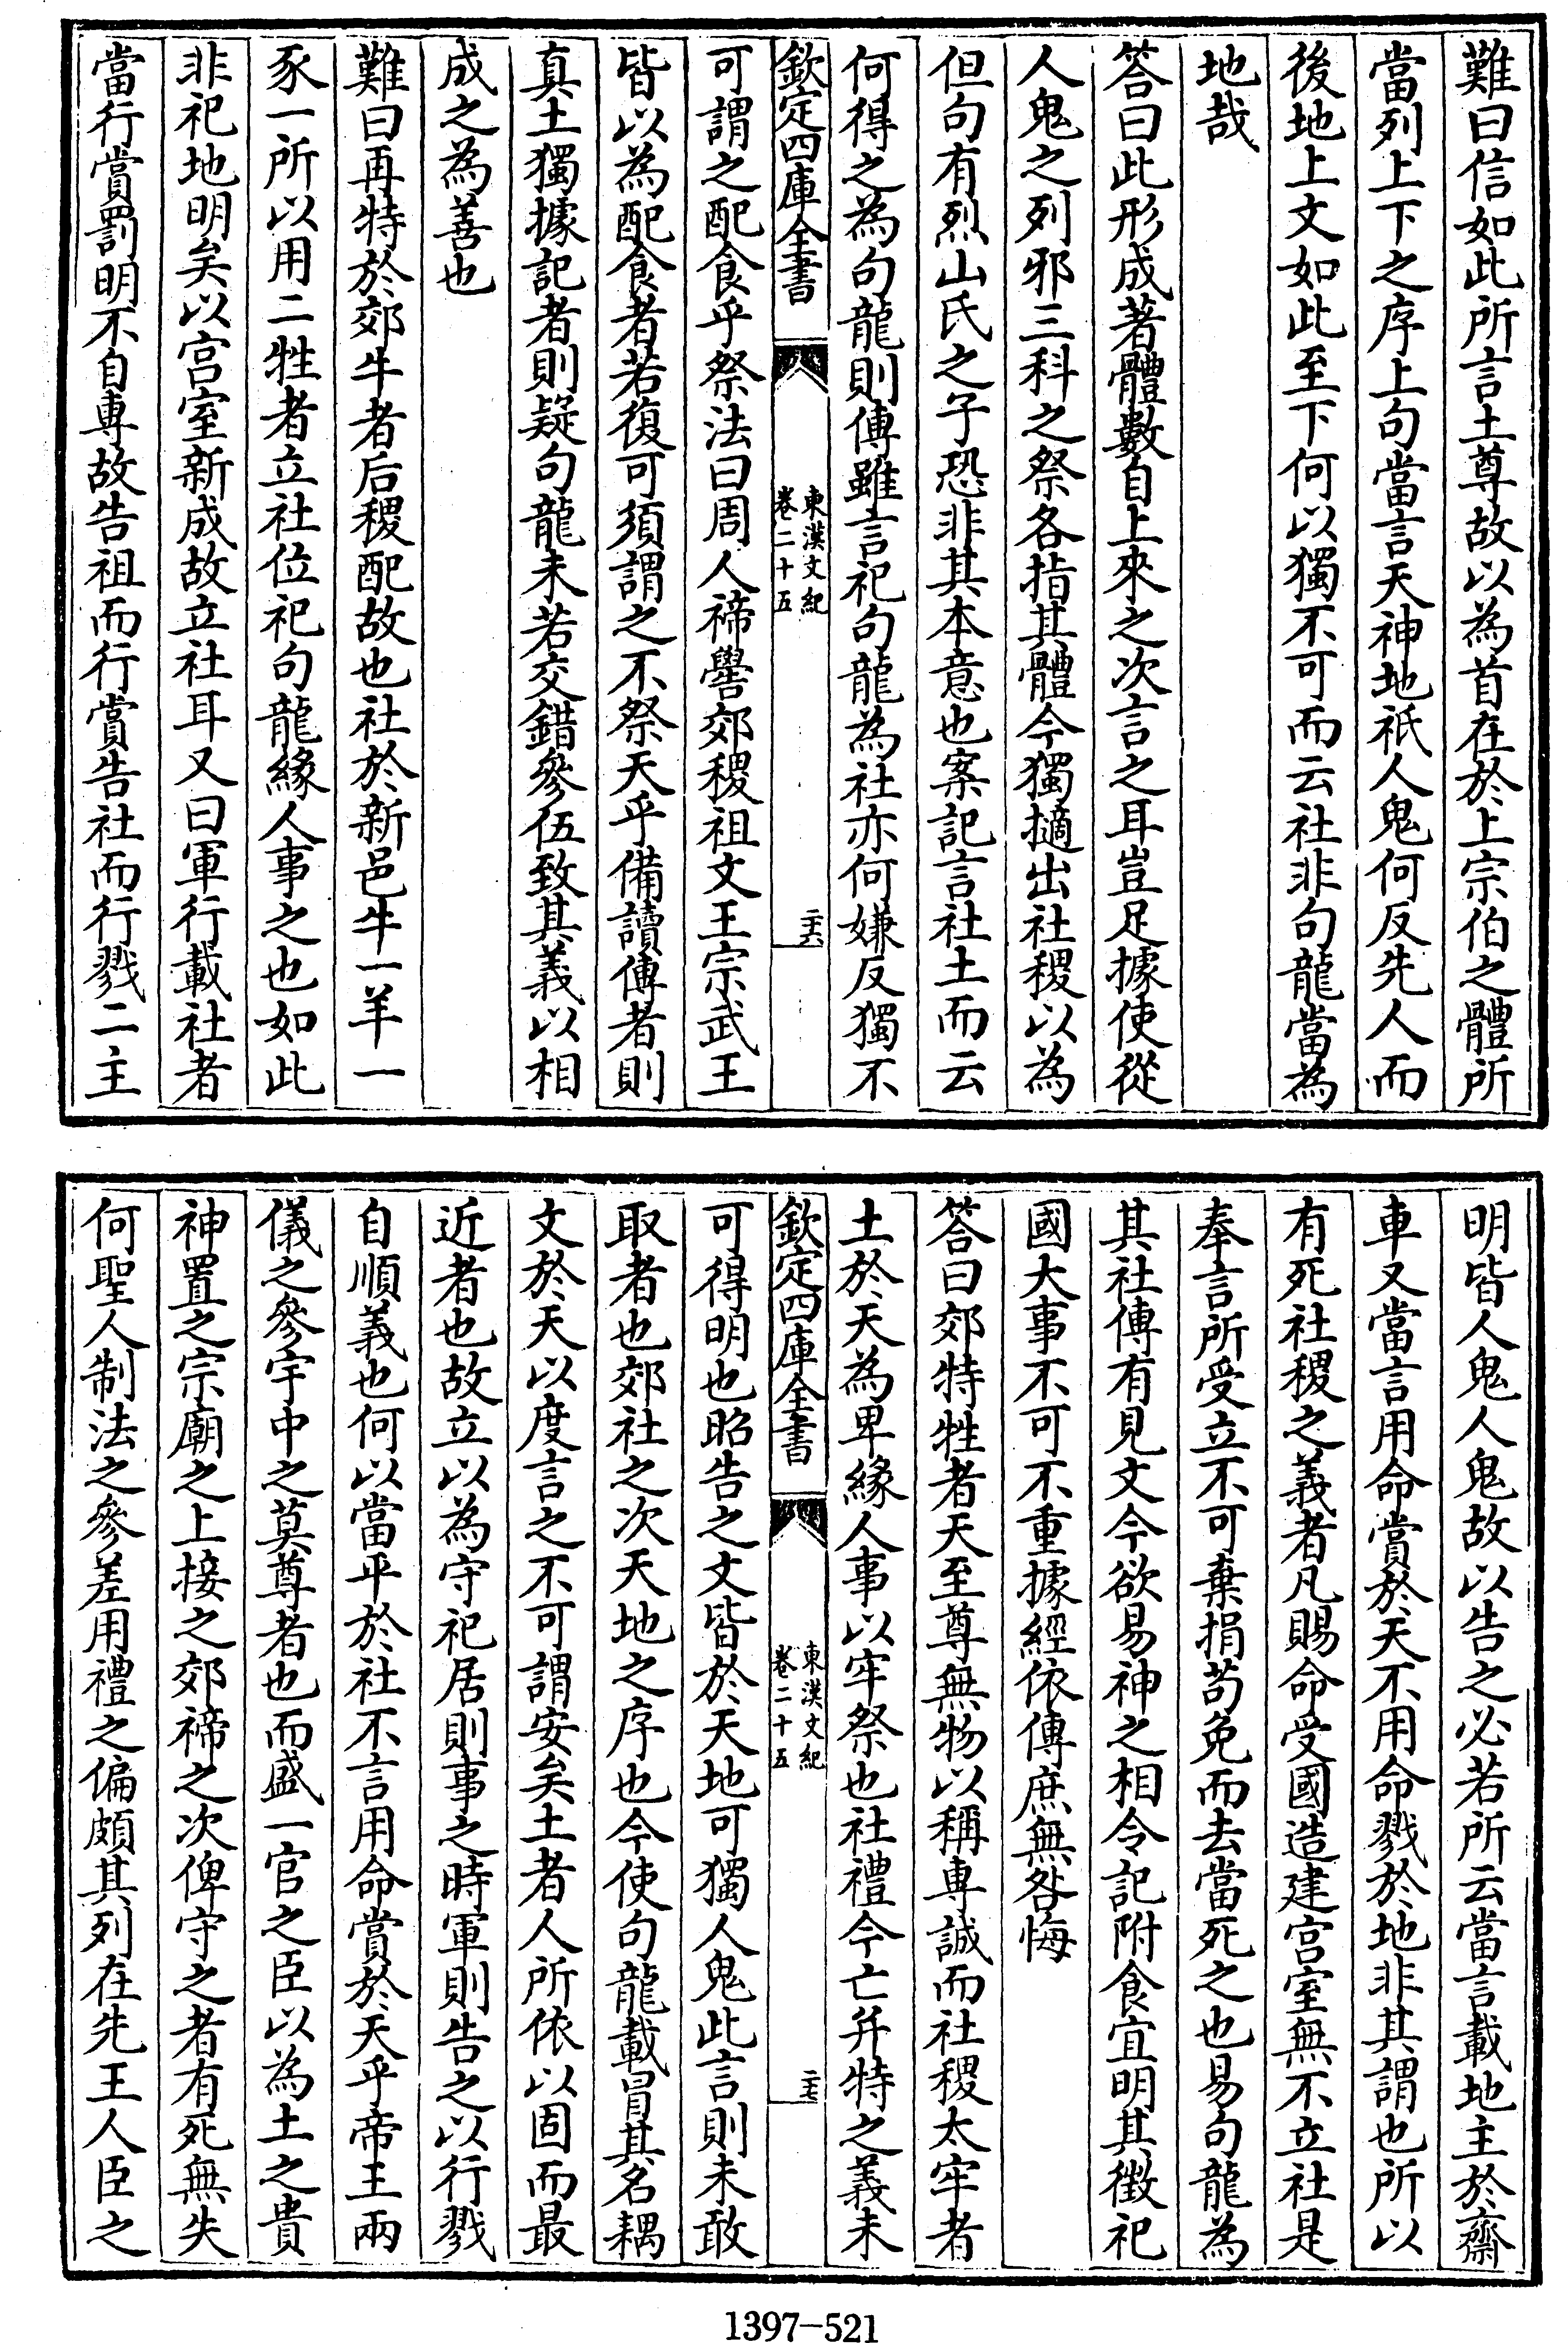 難曰信如此所言土尊故以為首在於上宗伯之體所
當列上下之序上句當言天神地祇人鬼何反先人而
後地上文如此至下何以獨不可而云社非句龍當為
地哉
答曰此形成著體數自上來之次言之耳豈足據使從
人鬼之列邪三科之祭各指其體今獨擿出社稷以為
但句有烈山氏之子恐非其本意也案記言社土而云
何得之為句龍則傳雖言祀句龍為社亦何嫌反獨不
欽定四庫全書
東漢文紀
卷二十五
二十六
可謂之配食乎祭法曰周人禘嚳郊稷祖文王宗武王
皆以為配食者若復可須謂之不祭天乎備讀傳者則
真土獨據記者則疑句龍未若交錯參伍致其義以相
成之為善也
難曰再特於郊牛者后稷配故也社於新邑牛一羊一
豕一所以用二牲者立社位祀句龍緣人事之也如此
非祀地明矣以宫室新成故立社耳又曰軍行載社者
當行賞罰明不自專故告祖而行賞告社而行戮二主
明皆人鬼人鬼故以告之必若所云當言載地主於齋
車又當言用命賞於天不用命戮於地非其謂也所以
有死社稷之義者凡賜命受國造建宫室無不立社是
奉言所受立不可棄捐苟免而去當死之也易句龍為
其社傳有見文今欲易神之相令記附食宜明其徵祀
國大事不可不重據經依傳庶無咎悔
答曰郊特牲者天至尊無物以稱專誠而社稷太牢者
土於天為卑緣人事以牢祭也社禮今亡并特之義未
欽定四庫全書
東漢文紀
卷二十五
二十七
可得明也昭告之文皆於天地可獨人鬼此言則未敢
取者也郊社之次天地之序也今使句龍載冒其名耦
文於天以度言之不可謂安矣土者人所依以固而最
近者也故立以為守祀居則事之時軍則告之以行戮
自順義也何以當平於社不言用命賞於天乎帝王兩
儀之參宇中之莫尊者也而盛一官之臣以為土之貴
神置之宗廟之上接之郊禘之次俾守之者有死無失
何聖人制法之參差用禮之偏頗其列在先王人臣之
1397-521